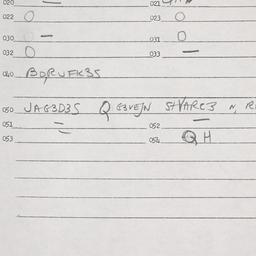 020 — 021
022 O 023 O
030 — 031 O
032 O 033 —
040 BDRUFK3S
050 JAG3D3S Q G3VEJN StVARC3 N, R
051 = 052 —
053 054 Q H